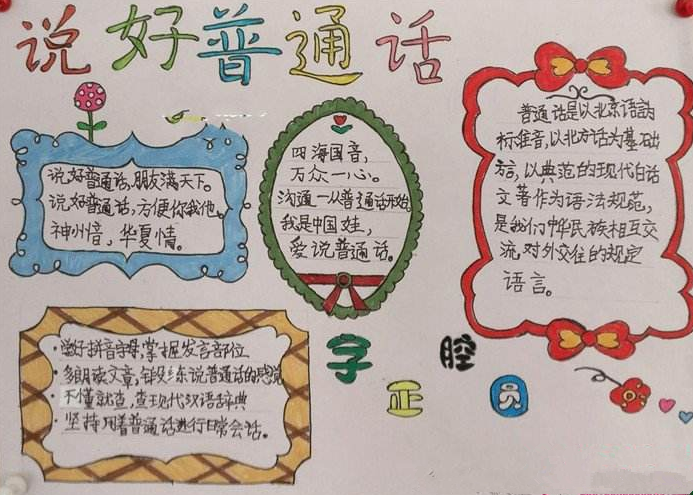 说好普通话
说好普通话,朋友满天下。
说好普通话,方便你我他。
神州音,华夏情。
四海国音,
万众一心。
沟通—从普通话开始
我是中国娃,
爱说普通话。
普通话是以北京语音为
标准音,以北方话为基础
方言,以典范的现代白话
文著作为语法规范,
是我们中华民族相互交
流,对外交往的规定
语言。
·学好拼音字母,掌握发言部位
·多朗读文章,锻炼说普通话的感觉
·不懂就查,查现代汉语辞典
·坚持用着普通话进行日常会话。
字正腔员